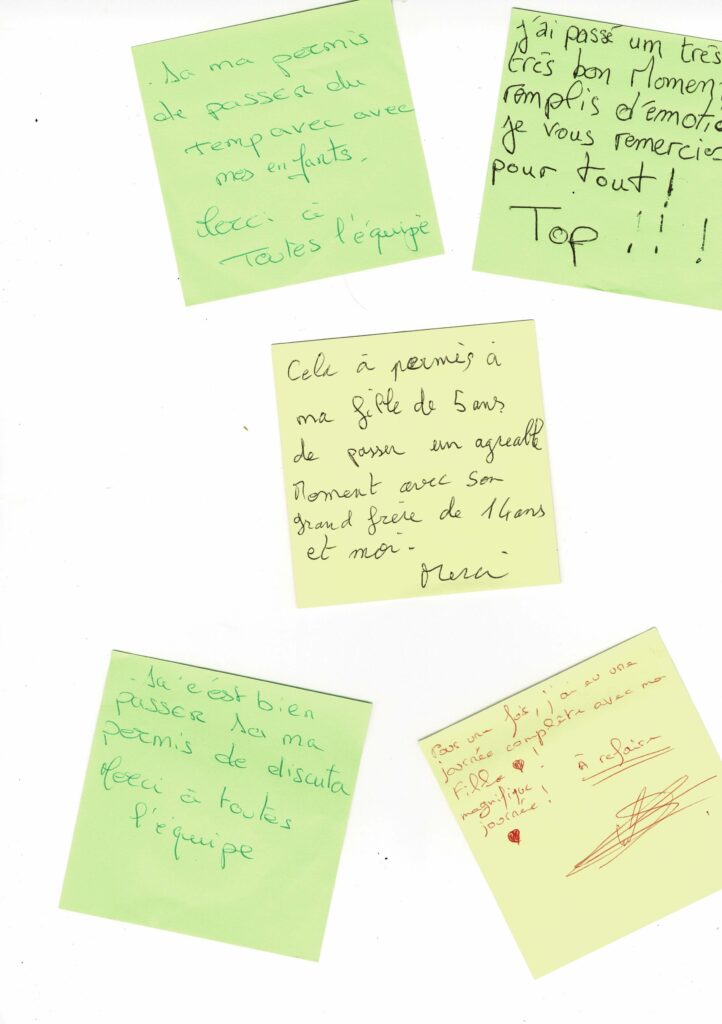 . Sa ma permis
de passer du
temp avec avec
mes enfants.
Merci à
Toutes l'équipe
j'ai passé um très
très bon Moment
remplis d'émotio
je vous remercie
pour tout !
Top !!! !
Cela à permis à
ma fille de 5 ans
de passer un agreable
Moment avec son
grand frère de 14 ans
et moi.
Merci
. Sa c'est bien
passer sa ma
permis de discuta
Merci à toutes
l'équipe
Pour une fois, j'ai eu une
journée complète avec ma
fille ♥ !
À refaire
magnifique
journée !
♥